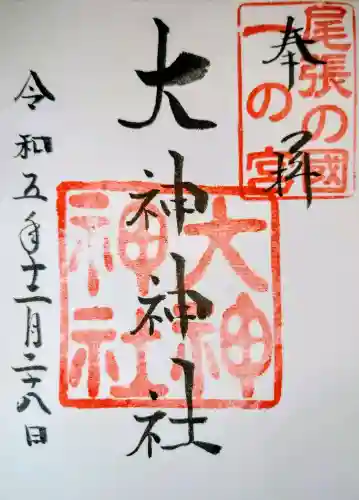 奉拝
尾張の國
一の宮
大神神社
大神
神社
令和五年十一月二十八日